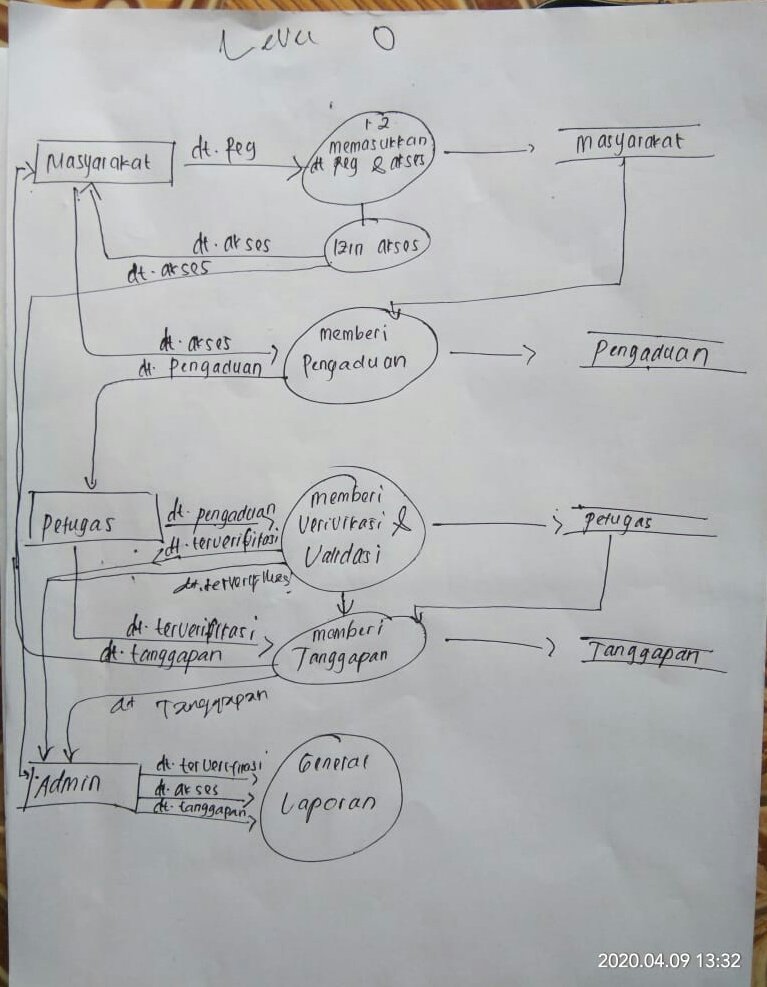 Level 0
1-2
Masyarakat
dt. Reg
memasukkan
dt Reg & akses
Masyarakat
Izin akses
dt. akses
dt. akses
dt. akses
dt. Pengaduan
memberi
Pengaduan
Pengaduan
Petugas
dt. pengaduan
dt. terverifikasi
dt. terverifikasi
memberi
Verivikasi &
Validasi
Petugas
dt. terverifikasi
dt. tanggapan
mamberi
Tanggapan
Tanggapan
dt Tanggapan
Admin
dt. terverifikasi
dt. akses
dt. tanggapan
General
Laporan
2020.04.09 13:32